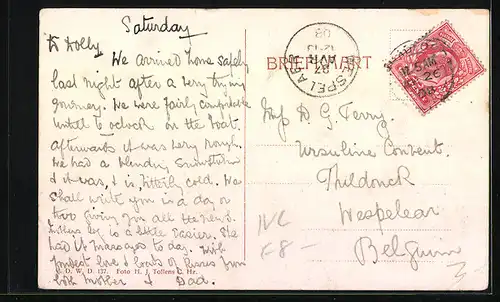 Saturday
Dr Dolly,
We arrived home safely
last night after a very trying
journey. We were fairly comfortable
until 10 oclock on the boat.
afterwards it was very rough.
We had a blinding Snowstorm
& it was, & is, bitterly cold. We
shall write you in a day or
two giving you all the news.
is a little easier. She
had it massaged to day. With
fondest love & loads of kisses from
both Mother & Dad.
D. W. D. 127. Foto H. J. Tollens C. Hr.
BRIEFKAART
WESPELAER
12-13
27 AVR
08
5 AM
26
08
Miss D G Terry,
Ursuline Convent.
Thildonck
Wespelear
Belgium
NL
£8 -